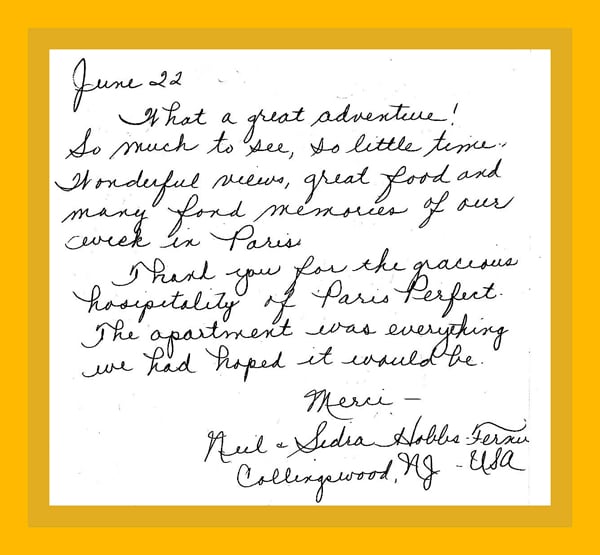 June 22
What a great adventure!
So much to see, so little time.
Wonderful views, great food and
many fond memories of our
week in Paris.
Thank you for the gracious
hospitality of Paris Perfect.
The apartment was everything
we had hoped it would be.
Merci —
Neil & Sedra Hobbs-
Collingswood, NJ - USA